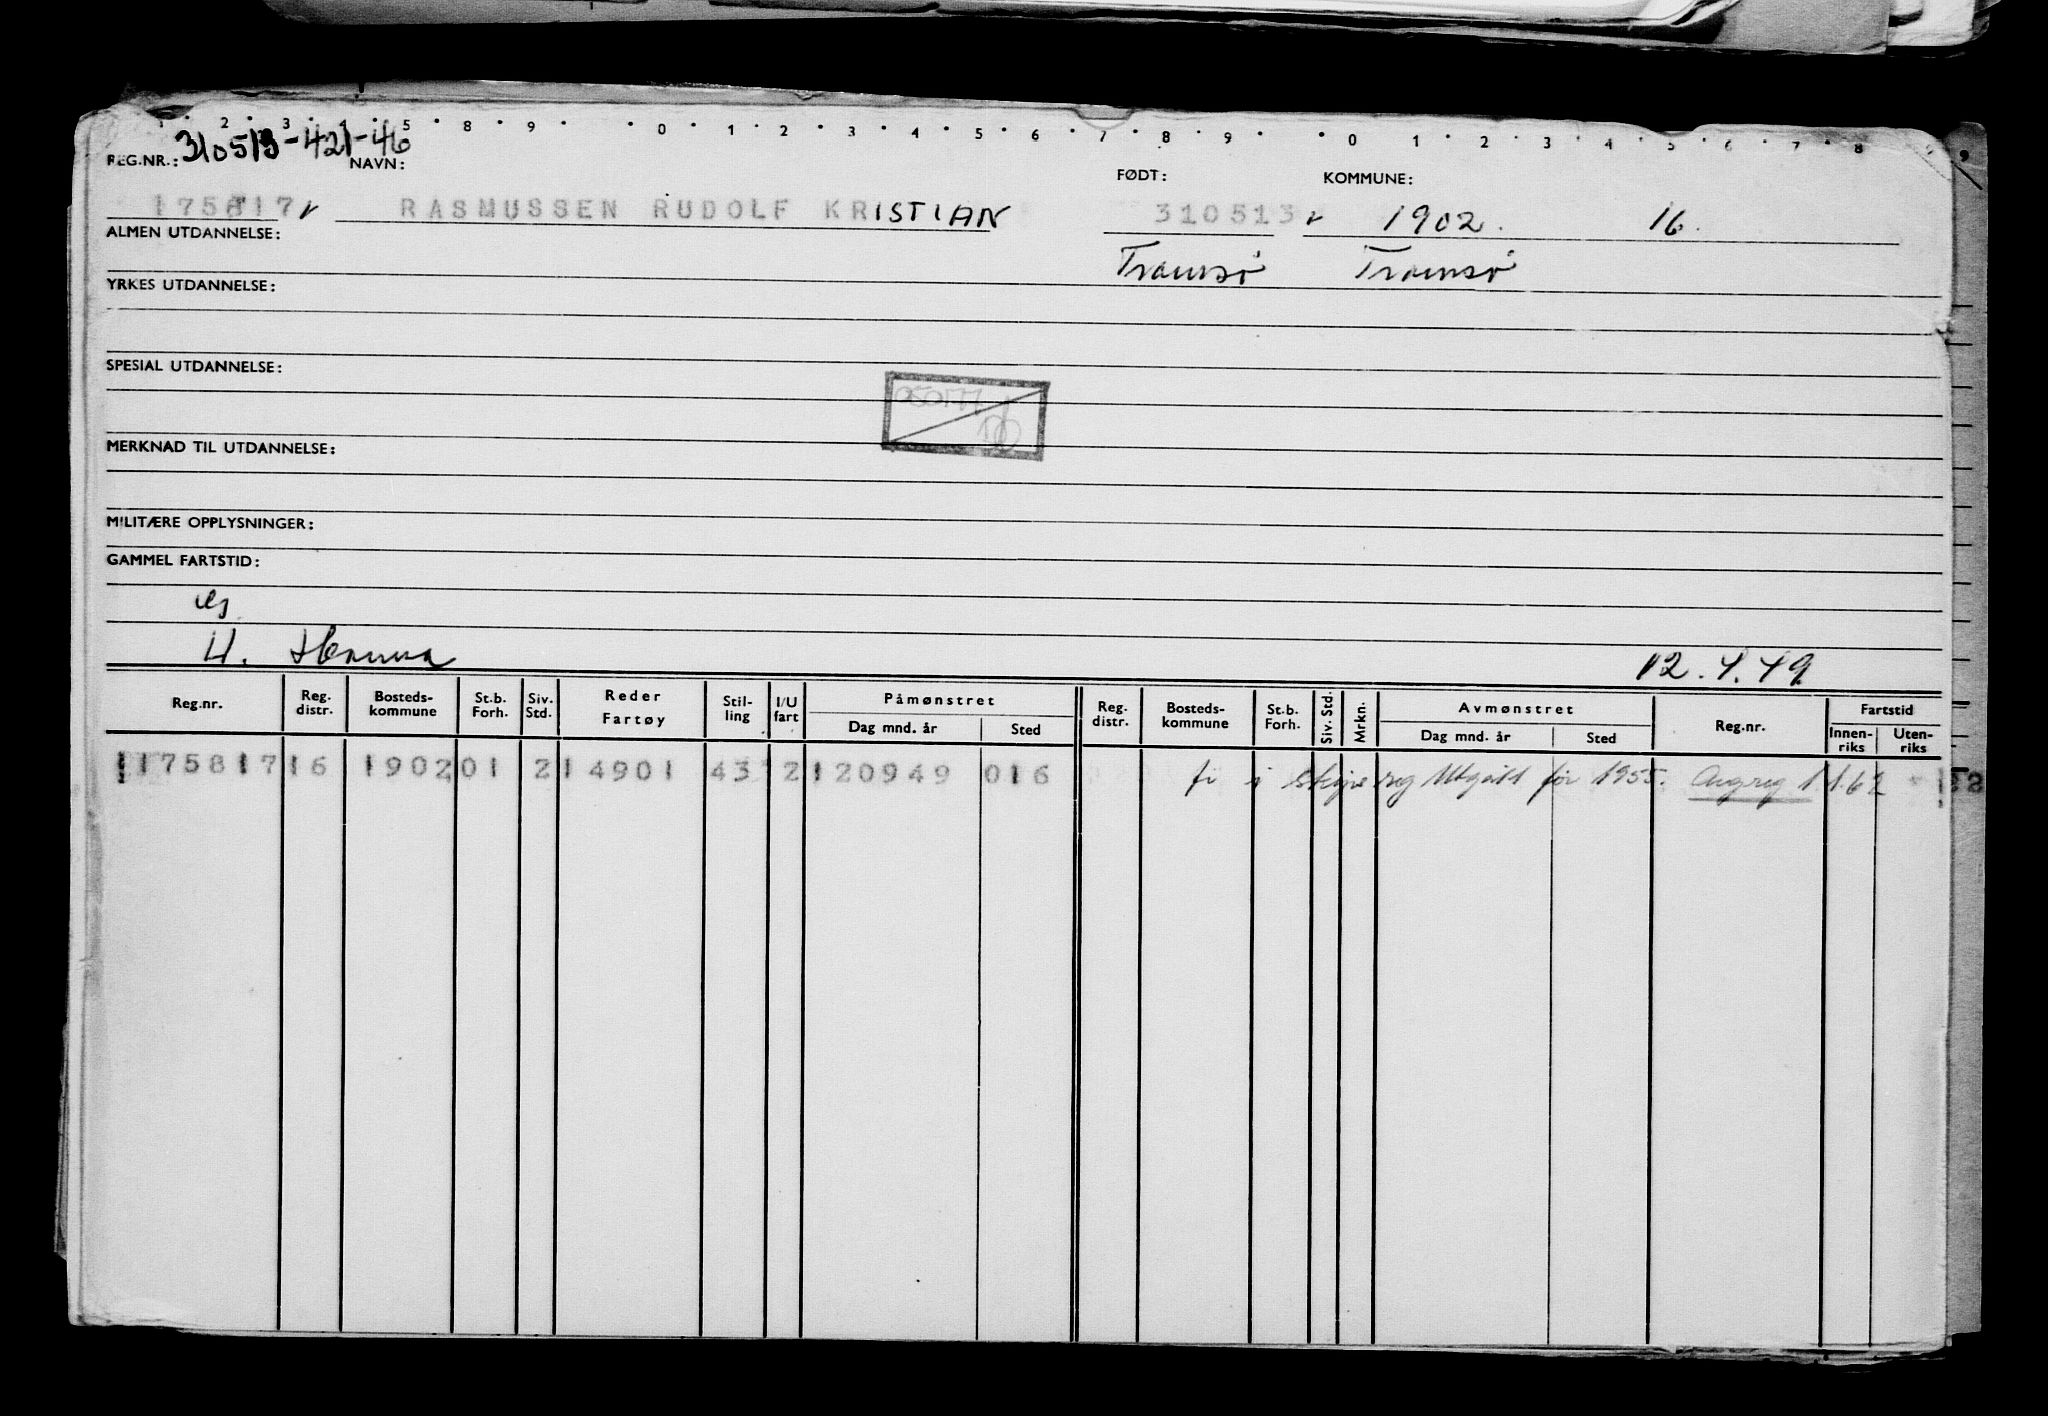 1 2 3 4 5 8 9 0 1 2 3 4 5 6 7 8 9 0 1 2 3 4 5 6 7 8 9
310513-421-46
REG.NR.: NAVN: FØDT: KOMMUNE:
175817 RASMUSSEN RUDOLF KRISTIAN 310513 1902. 16.
ALMEN UTDANNELSE: Tromsø Tromsø
YRKES UTDANNELSE:
SPESIAL UTDANNELSE:
MERKNAD TIL UTDANNELSE:
MILITÆRE OPPLYSNINGER:
GAMMEL FARTSTID:
12.4.49
Reg.nr. Reg. distr. Bosteds-kommune St.b. Forh. Siv. Std. Reder Fartøy Stil-ling I/U fart Påmønstret Dag mnd. år Sted Reg. distr. Bosteds-kommune St.b. Forh. Siv. Std. Mrkn. Avmønstret Dag mnd. år Sted Reg.nr. Fartstid Innen-riks Uten-riks
175817 16 1902 01 2 14901 43 2 120949 016 utgått før 1955. 1.1.62